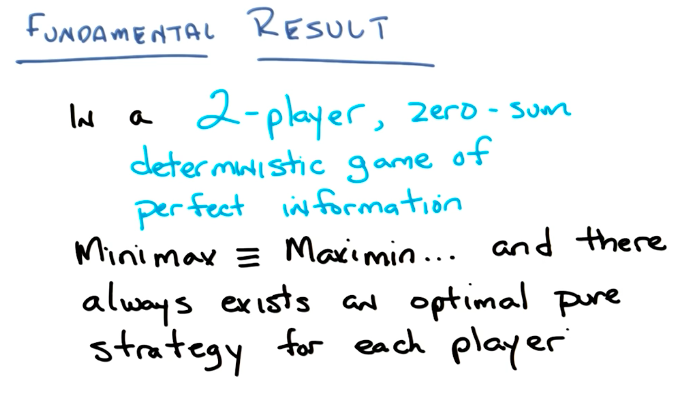 FUNDAMENTAL RESULT
In a 2-player, zero-sum
deterministic game of
perfect information
Minimax ≡ Maximin... and there
always exists an optimal pure
strategy for each player